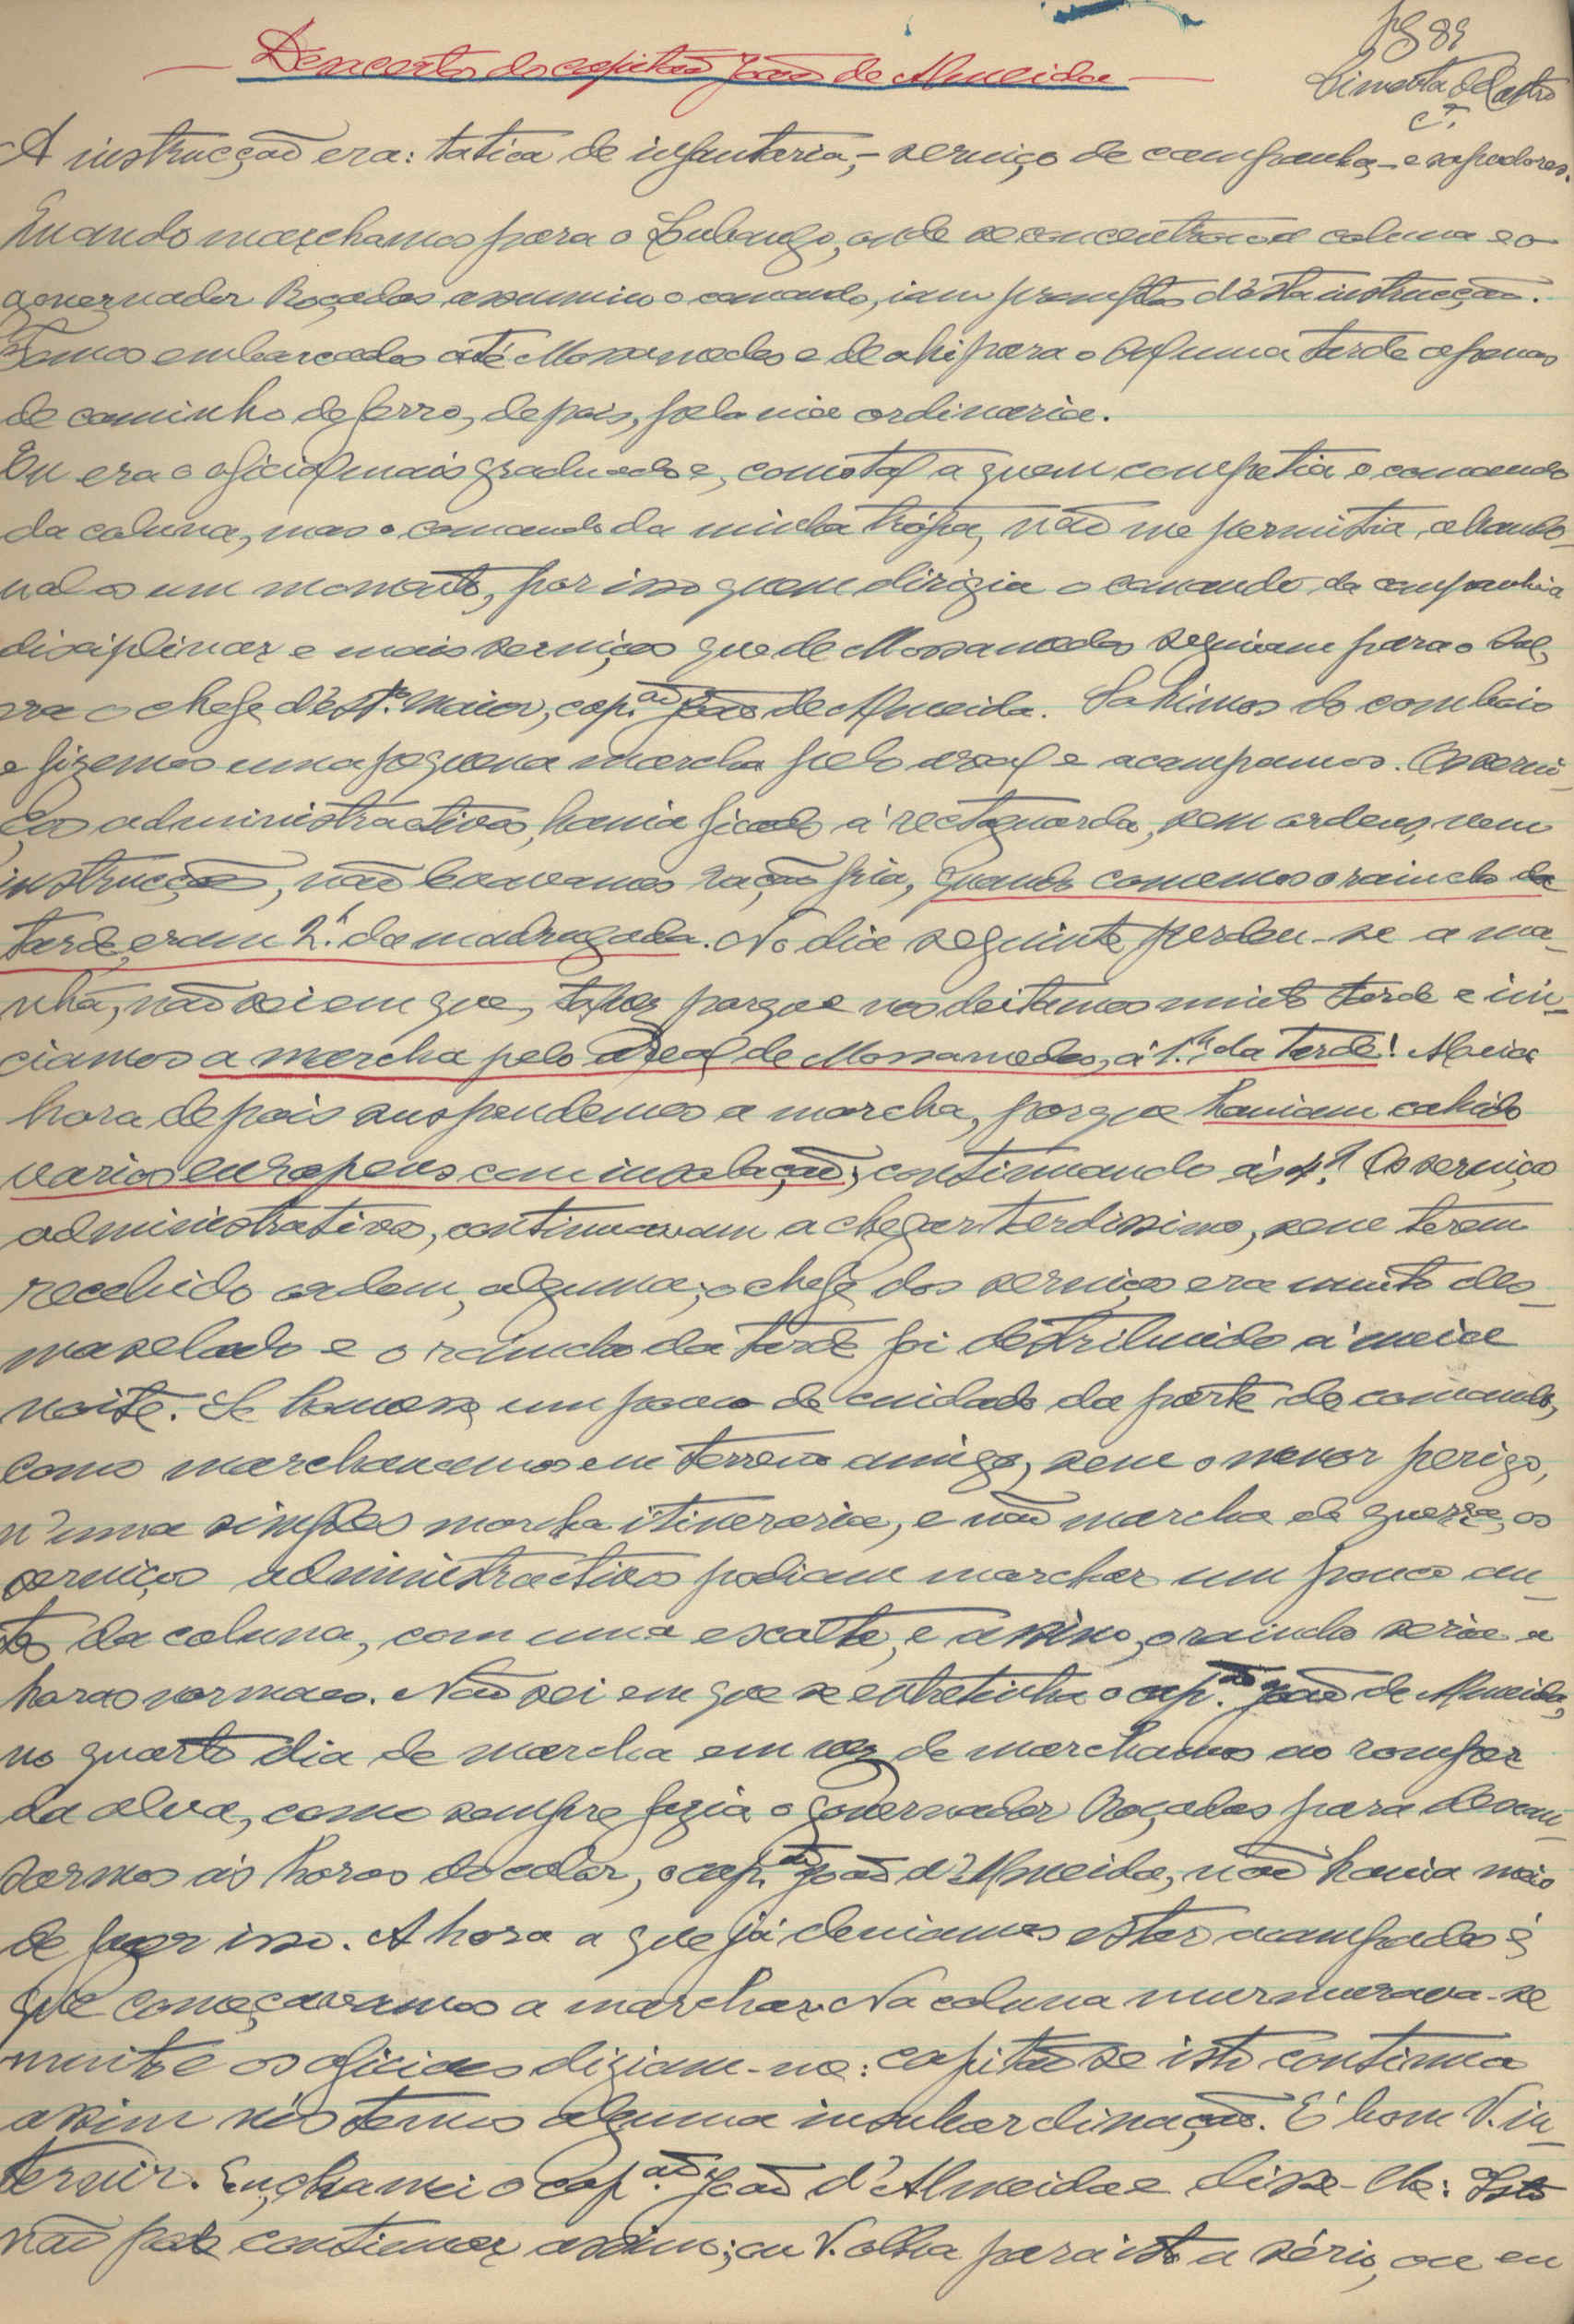 — Desacerto do capitão João de Almeida —
pg 89
Pimenta de Castro
A instrucção era: tatica de infantaria, – serviço de campanha, – e sapadores.
Quando marchamos para o Lubango, onde se concentrava a coluna e o
governador Roçadas assumiu o comando, iam promptos d'esta instrucção.
Fomos embarcados até Mossamedes e de ahi para o Sul uma tarde apenas
de caminho de ferro, depois, pela via ordinaria.
Eu era o oficial mais graduado e, como tal a quem competia o comando
da coluna, mas o comando da minha trópa, não me permitia, abando-
nal-a um momento, por isso quem dirigia o comando da companhia
disciplinar e mais serviços que de Mossamedes seguiam para o Sul,
era o chefe d'Est.º Maior, cap.ão João de Almeida. Sahimos do comboio
e fizemos uma pequena marcha pelo areal e acampamos. Os servi-
ços administractivos, havia ficado á rectaguarda, sem ordens, nem
instrucções, não levavamos ração fria, quando comemos o rancho da
tarde eram 2.h da madrugada. No dia seguinte perdeu-se a ma-
nhã, não sei em que, talvez porque nos deitamos muito tarde e ini-
ciamos a marcha pelo areal de Mossamedes, á 1.h da tarde! Meia
hora depois suspendemos a marcha, porque haviam cahido
varios europeus com insolação, continuando ás 4.h Os serviços
administrativos, continuavam a chegar tardissimo, sem terem
recebido ordem, alguma; o chefe dos serviços era muito des-
maselado e o rancho da tarde foi destribuido á meia
noite. Se houvesse um pouco de cuidado da parte do comando,
como marchavamos em terreno amigo, sem o menor perigo,
n'uma simples marcha itineraria, e não marcha de guerra, os
serviços administractivos podiam marchar um pouco an-
tes da coluna, com uma escolta, e assim, o rancho seria a
horas normaes. Não sei em que se entretinha o cap.ão João de Almeida,
no quarto dia de marcha em vez de marcharmos ao romper
da alva, como sempre fazia o governador Roçadas para descan-
sarmos ás horas do calor, o cap.ão João d'Almeida, não havia meio
de fazer isso. A hora a que já deviamos estar acampados é
que começavamos a marchar. Na coluna murmurava-se
muito e os oficiaes diziam-me: capitão se isto continua
assim nós temos alguma insubordinação. É bom V. in-
tervir. Eu, chamei o cap.ão João d'Almeida e disse-lhe: Isto
não pode continuar assim; ou V. olha para isto a sério, ou eu